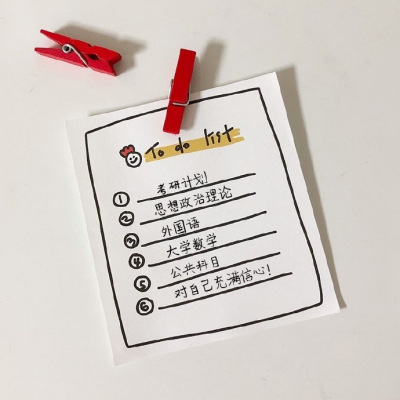 To do list
① 考研计划
② 思想政治理论
③ 外国语
④ 大学数学
⑤ 公共科目
⑥ 对自己充满信心!